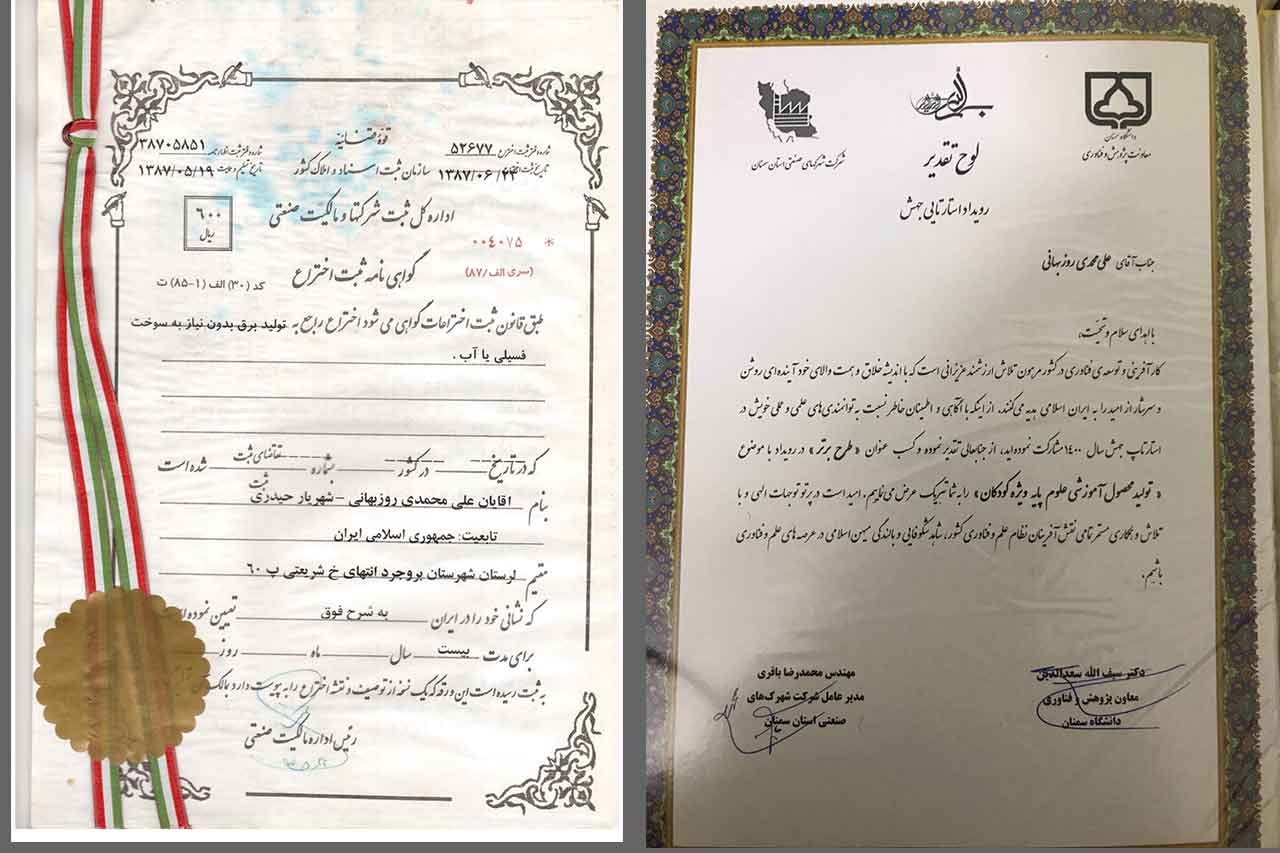 قوه قضائیه
شماره دفتر ثبت اختراع ۵۲۶۷۷
تاریخ ثبت اختراع ۱۳۸۷/۰۶/۲۳
شماره دفتر ثبت اظهارنامه ۳۸۷۰۵۸۵۱
تاریخ تسلیم ۱۳۸۷/۰۵/۱۹
سازمان ثبت اسناد و املاک کشور
اداره کل ثبت شرکتها و مالکیت صنعتی
۶۰۰
ریال
* ۰۰۴۰۷۵
(سری الف/۸۷)
گواهی نامه ثبت اختراع
کد (۳۰) الف (۱-۸۵) ت
طبق قانون ثبت اختراعات گواهی می شود اختراع راجع به تولید برق بدون نیاز به سوخت
فسیلی یا آب .
که در تاریخ در کشور شماره تقاضای ثبت شده است
ثبت
بنام اقایان علی محمدی روزبهانی – شهریار حیدری
تابعیت: جمهوری اسلامی ایران
مقیم لرستان شهرستان بروجرد انتهای خ شریعتی پ ۶۰
که نشانی خود را در ایران به شرح فوق تعیین نموده
برای مدت بیست سال ماه روز
به ثبت رسیده است این ورقه که یک نسخه از توصیف و نقشه اختراع را به پیوست دارد
رئیس اداره مالکیت صنعتی
دانشگاه سمنان
معاونت پژوهش و فناوری
شرکت شهرکهای صنعتی استان سمنان
لوح تقدیر
رویداد استارتاپی جهش
جناب آقای علی محمدی روزبهانی
با اهدای سلام و تحیت،
کارآفرینی و توسعه ی فناوری در کشور مرهون تلاش ارزشمند عزیزانی است که با اندیشه خلاق و همت والای خود آینده ای روشن
و سرشار از امید را به ایران اسلامی هدیه می کنند. از اینکه با آگاهی و اطمینان خاطر نسبت به توانمندی های علمی و عملی خویش در
استارتاپ جهش سال ۱۴۰۰ مشارکت نموده اید، از جنابعالی تقدیر نموده و کسب عنوان « طرح برتر » در رویداد با موضوع
« تولید محصول آموزشی علوم پایه ویژه کودکان » را به شما تبریک عرض می نماییم. امید است در پرتو توجهات الهی و با
تلاش و همکاری مستمر تمامی نقش آفرینان نظام علم و فناوری کشور، شاهد شکوفایی و بالندگی میهن اسلامی در عرصه های علم و فناوری
باشیم.
دکتر سیف الله سعدالدین
معاون پژوهش و فناوری
دانشگاه سمنان
مهندس محمدرضا باقری
مدیر عامل شرکت شهرک‌های
صنعتی استان سمنان